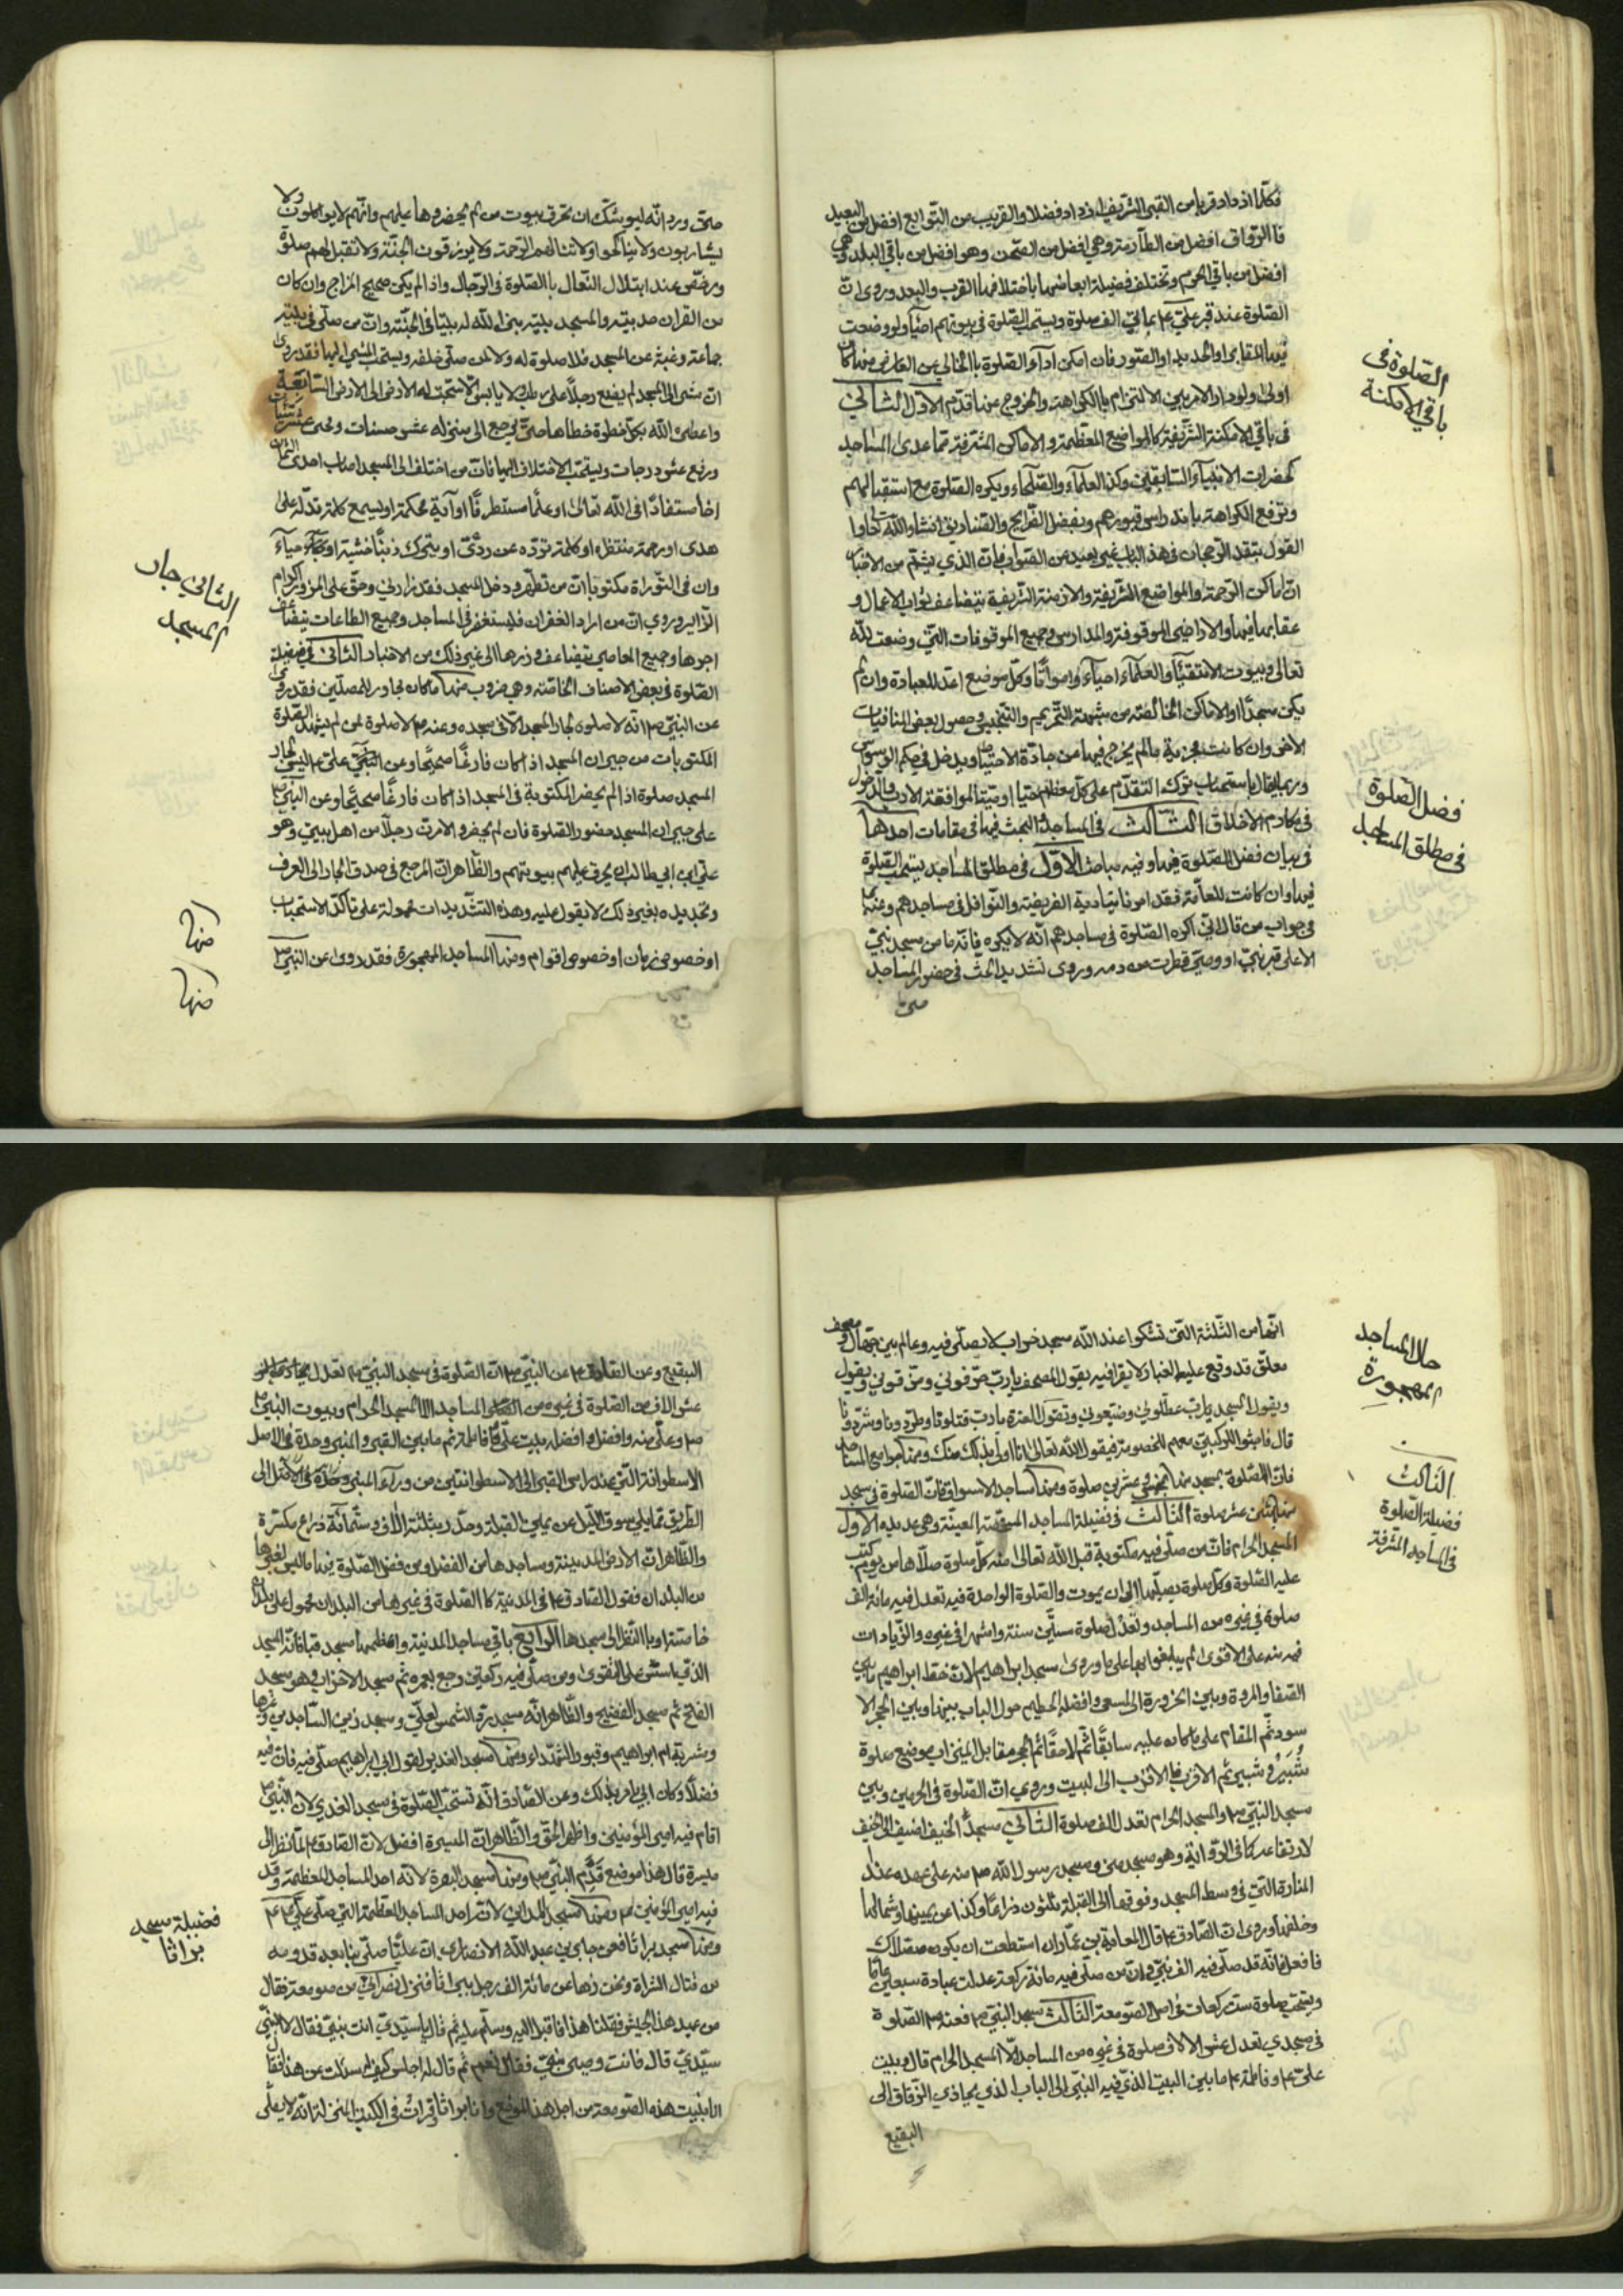 فكلما ازداد قربا من القبر الشريف ازداد فضلا والقريب من التوابع افضل من البعيد
فالرواق افضل من الطارمة وهي افضل من الصحن وهو افضل من باقي البلد وهي
افضل من باقي الحرم وتختلف فضيلة ابعاضها باختلافها القرب والبعد وروى ان
الصلوة عند قبر علي ع بمائتي الف صلوة ويستحب الصلوة في بيوتهم احياء ولو وضعت
فيها المقابر او الحديد او الصور فان امكن اداء الصلوة بالخالي عن العارض منها كان
اولى ولو دار الامر بين الالتزام بالكراهة والخروج عنها قدم الاول الثاني
في باقي الامكنة الشريفة كالمواضع المعظمة والاماكن المشرفة مما عدى المساجد
كحضرات الانبياء السابقين وكذا العلماء والصلحاء ويكره الصلوة مع استقبالهم
وترفع الكراهة باندراس قبورهم وبفضل الضرايح والصناديق انشاء الله تعالى
القول بتعدد الوجهات في هذا الباب غير بعيد من الصواب فان الذي يشم من الاخبار
ان اماكن الرحمة والمواضع الشريفة والازمنة الشريفة يتضاعف ثواب الاعمال و
عقابها فيها والاراضي الموقوفة والمدارس وجميع الموقوفات التي وضعت لله
تعالى وبيوت الاتقياء والعلماء احياء وامواتا وكل موضع اعد للعبادة وان لم
يكن مسجدا او الاماكن الخالصة من شبهة التحريم والتنجيس وحصول بعض المنافيات
الاخر وان كانت مجزية ما لم يخرج فيها من جادة الاحتياط ويدخل في حكم الوسواس
وربما يقال باستحباب ترك التقدم على كل معظم حيا او ميتا لموافقة الادب والدخول
في مكارم الاخلاق الثالث في المساجد والبحث فيها في مقامات احدها
في بيان فضل الصلوة فيها وفيه مباحث الاول في مطلق المساجد يستحب الصلوة
فيها وان كانت للعامة فقد امرنا بتادية الفريضة والنوافل في مساجدهم وعنه ع
في جواب من قال اني اكره الصلوة في مساجدهم انه لا يكره فانه ما من مسجد بني
الا على قبر نبي او وصي قطرت من دمه وروى تشديد الحث في حضور المساجد
حتى
الصلوة في
باقي الامكنة
فضل الصلوة
في مطلق المساجد
حتى ورد انه ليوشك ان تحرق بيوت من لم يحضروها عليهم وانهم لا يواكلون ولا
يشاربون ولا يناكحوا ولا تنالهم الرحمة ولا يرزقون الجنة ولا تقبل لهم صلوة
ورخص عند ابتلال النعال بالصلوة في الرحال واذا لم يكن صحيح المزاج وان كان
من القران حديثه والمسجد بيته بنى الله له بيتا في الجنة وان من صلى في بيته
جماعة رغبة عن المسجد فلا صلوة له ولا لمن صلى خلفه ويستحب المشي اليها فقد روى
ان من مشى الى المسجد لم يضع رجلا على رطب ولا يابس الا سبحت له الارض الى الارض السابعة
واعطاه الله بكل خطوة خطاها حتى يرجع الى منزله عشر حسنات ومحى عشر سيئات
ورفع عشر درجات ويستحب الاختلاف اليها فان من اختلف الى المسجد اصاب احدى الثمان
اخا مستفادا في الله تعالى او علما مستطرفا او اية محكمة او يسمع كلمة تدله على
هدى او رحمة منتظرة او كلمة ترده عن ردى او يترك ذنبا خشية او حياء
وان في التوراة مكتوبا ان من تطهر ودخل المسجد فقد زارني وحق على المزور اكرام
الزاير وروي ان من اراد الغفران فليستغفر في المساجد وجميع الطاعات يتضاعف
اجرها وجميع المعاصي يتضاعف وزرها الى غير ذلك من الاخبار الثاني في فضيلة
الصلوة في بعض الاصناف الخاصة وهي ضروب منها ما كان مجاور للمصلين فقد روى
عن النبي ص انه لا صلوة لجار المسجد الا في مسجده وعنه ص لا صلوة لمن لم يشهد الصلوة
المكتوبات من جيران المسجد اذا كان فارغا صحيحا وعن النبي ص على ع ليس لجار
المسجد صلوة اذا لم يحضر المكتوبة في المسجد اذا كان فارغا صحيحا وعن النبي ص
على جيران المسجد حضور الصلوة فان لم يحضروا لامرت رجلا من اهل بيتي وهو
علي ابن ابي طالب ان يحرق عليهم بيوتهم والظاهر ان المرجع في صدق الجار الى العرف
وتحديده بغير ذلك لا يقول عليه وهذه التشديدات محمولة على تاكد الاستحباب
او خصوص زمان او خصوص اقوام ومنها المساجد المهجورة فقد روى عن النبي ص
الثاني جار
المسجد
منها
منها
انها من الثلثة التي تشكوا عند الله مسجد خراب لا يصلى فيه وعالم بين جهال ومصحف
معلق قد وقع عليه الغبار لا يقرا فيه يقول المصحف يا رب حرفوني ومزقوني ويقول
ويقول المسجد يا رب عطلوني وضيعوني وتقول العترة يا رب قتلونا وطردونا وشردونا
قال فاجثوا للركبتين معهم للخصومة فيقول الله تعالى انا اولى بذلك منك ومنها جوامع المساجد
فان الصلوة بمسجد منها بخمس وعشرين صلوة ومنها مساجد الاسواق فان الصلوة في مسجد
منها باثنتي عشر صلوة الثالث في فضيلة المساجد المشرفة المعينة وهي عديده الاول
المسجد الحرام فان من صلى فيه مكتوبة قبل الله تعالى منه كل صلوة صلاها من يوم كتب
عليه الصلوة وكل صلوة يصليها الى ان يموت والصلوة الواحدة فيه تعدل فيه مائة الف
صلوة في غيره من المساجد وتعدل صلوة ستين سنة واشهرا في غيره والزيادات
فيه منه على الاقوى لم يبلغوا بها على ما روى مسجد ابراهيم لان خط ابراهيم ما بين
الصفا والمروة وبين الحزورة الى المسعى وافضله الحطيم حول الباب بينها وبين الحجر الا
سود ثم المقام على ما كان عليه سابقا ثم لاحقا ثم الحجر مقابل الميزاب موضع صلوة
شبر وشبير ثم الاقرب فالاقرب الى البيت وروي ان الصلوة في الحرمين وبين
مسجد النبي ص والمسجد الحرام تعدل الف صلوة الثاني مسجد الخيف اضيف الى الخيف
لارتفاعه كما في الرواية وهو مسجد منى ومسجد رسول الله ص منه على عهده عند
المنارة التي في وسط المسجد وفوقها الى القبلة بثلثون ذراعا وكذا عن يمينها وشمالها
وخلفها وروى ان الصادق ع قال لمعاوية بن عمار ان استطعت ان يكون مصلاك
فافعل فانه قد صلى فيه الف نبي وان من صلى فيه مائة ركعة عدلت عبادة سبعين عاما
ويستحب صلوة ست ركعات في اصل الصومعة الثالث مسجد النبي ص فعنه ص الصلوة
في مسجدي تعدل عشر الالاف صلوة في غيره من المساجد الا المسجد الحرام قال وبيت
علي ع وفاطمة ع ما بين البيت الذي فيه النبي الى الباب الذي يحاذي الزقاق الى
البقيع
حال المساجد
المهجورة
الثالث
فضيلة الصلوة
في المساجد المشرفة
البقيع وعن الصادق ع عن النبي ص ان الصلوة في مسجد النبي ص تعدل
عشر الاف من الصلوة في غيره من المساجد الا المسجد الحرام وبيوت النبي ص
وعلي منه وافضل وافضله بيت علي وفاطمة ثم ما بين القبر والمنبر وحده في الاصل
الاسطوانة التي عند راس القبر الى الاسطوانتين من وراء المنبر وحده في الاصل الى
الطريق مما يلي سوق الليل عن يمين القبلة وحد بثلثة الاف وستمائة ذراع مكسرة
والظاهر ان لارض المدينة ومساجدها من الفضل ومن فضل الصلوة فيها ما ليس لغيرها
من البلدان فقول الصادق ع في المدينة كالصلوة في غيرها من البلدان محمول على بلدان
خاصة او بالنظر الى مسجدها الرابع باقي مساجد المدينة واعظمها مسجد قبا فانه المسجد
الذي اسس على التقوى ومن صلى فيه ركعتين رجع بعمرة ثم مسجد الاحزاب وهو مسجد
الفتح ثم مسجد الفضيخ والظاهر انه مسجد رد الشمس لعلي ومسجد زين الساجدين وغيرها
ومشربة ام ابراهيم وقبور الشهداء ومنها مسجد الغدير لقول ابي ابراهيم صلى فيه فان فيه
فضلا وكان ابي يامر بذلك وعن الصادق انه تستحب الصلوة في مسجد الغدير لان النبي ص
اقام فيه امير المؤمنين واظهر الحق والظاهر ان الميسرة افضل لان الصادق ع لما نظر الى
ميسرة قال هذا موضع قدم النبي ص ومنها مسجد البصرة لانه احد المساجد المعظمة وقد
فيه امير المؤمنين ع ومنها مسجد المدائن لانه من احد المساجد المعظمة التي صلى علي ع
ومنها مسجد براثا فعن جابر بن عبد الله الانصاري ان عليا صلى بنا بعد قدومه
من قتال الشراة ونحن زهاء عن مائة الف رجل ببراثا فنزل نصراني من صومعته فقال
من عميد هذا الجيش فقلنا هذا فاقبل اليه وسلم عليه ثم قال يا سيدي انت نبي فقال لا النبي
سيدي قال فانت وصي نبي فقال نعم ثم قال له اجلس كيف سئلت عن هذا فقال
انا بنيت هذه الصومعة من اجل هذا الموضع وانا براثا وقرات في الكتب المنزلة انه لا يصلي
فضيلة مسجد
براثا